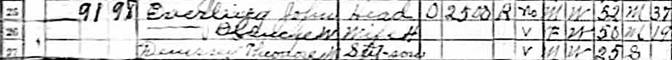 25 91 98 Everling John Head O 2500 R No M W 52 M 37
26 Blanche W Wife H V F W 50 M 19
27 Theodore M Step-son V M W 25 S